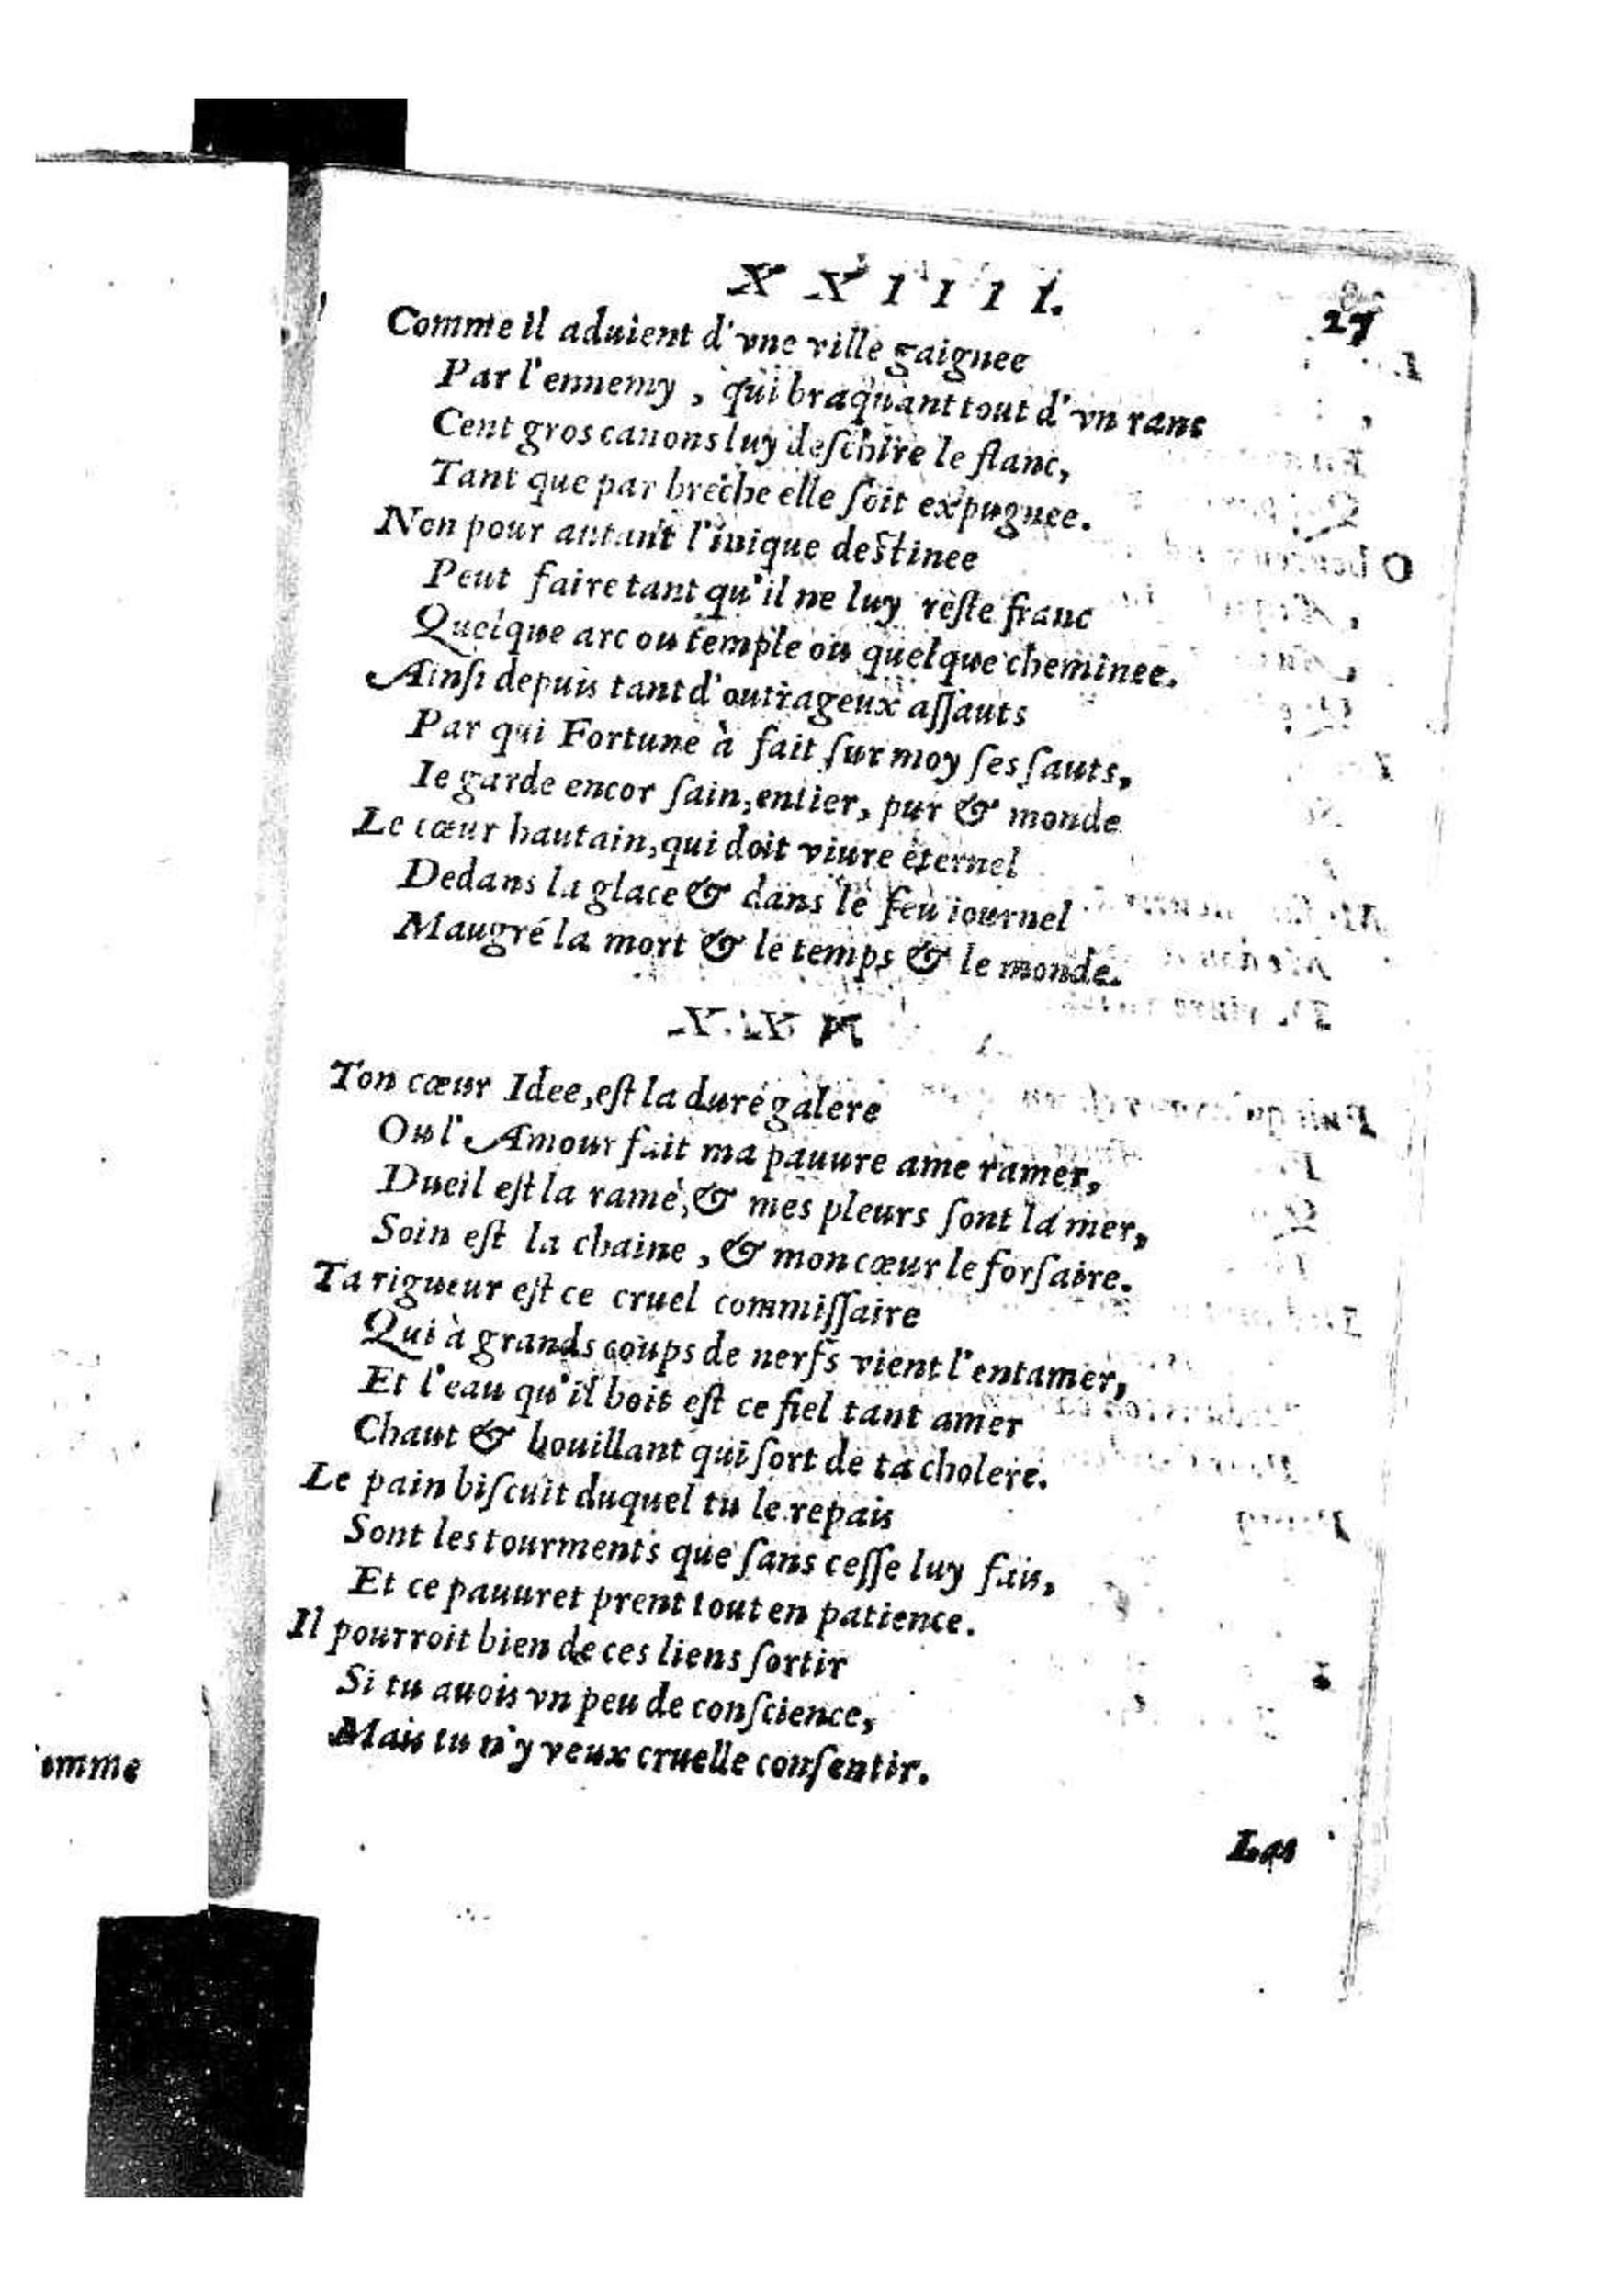 XXIIII.
27
Comme il aduient d'vne ville gaignee
Par l'ennemy, qui braquant tout d'vn ranc
Cent gros canons luy deſchire le flanc,
Tant que par breche elle ſoit expugnee.
Non pour autant l'inique destinee
Peut faire tant qu'il ne luy reſte franc
Quelque arc ou temple ou quelque cheminee.
Ainſi depuis tant d'outrageux aſſauts
Par qui Fortune à fait ſur moy ses ſauts,
Ie garde encor ſain, entier, pur & monde
Le cœur hautain, qui doit viure eternel
Dedans la glace & dans le feu iournel
Maugré la mort & le temps & le monde.
Ton cœur Idee, eſt la dure galere
Ou l'Amour fait ma pauure ame ramer,
Dueil eſt la rame, & mes pleurs ſont la mer,
Soin eſt la chaine, & mon cœur le forſaire.
Ta rigueur eſt ce cruel commiſſaire
Qui à grands coups de nerfs vient l'entamer,
Et l'eau qu'il boit eſt ce fiel tant amer
Chaut & bouillant qui ſort de ta cholere.
Le pain biſcuit duquel tu le repais
Sont les tourments que ſans ceſſe luy fais,
Et ce pauuret prent tout en patience.
Il pourroit bien de ces liens ſortir
Si tu auois vn peu de conſcience,
Mais tu n'y veux cruelle conſentir.
omme
Las